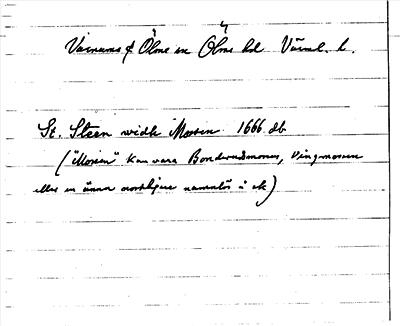 Varnums f Ölme sn Ölme hd Värml. l.
St. Steen widh Mossen 1666 db
("Mossen" kan vara Bonderudsmossen, Vingmossen
eller en ännu nordligare namnlös å ek)